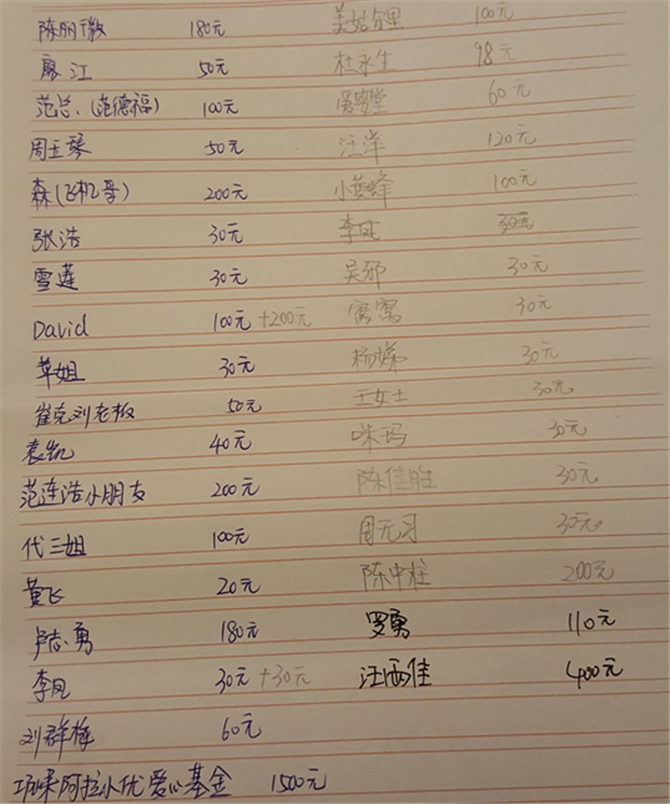 陈丽薇 180元 美姑分里 100元
廖江 50元 杜永生 98元
范总.(范德福) 100元 爱婴堂 60元
周玉琴 50元 汪洋 120元
森(飞机哥) 200元 小蜜蜂 100元
张浩 30元 李凤 30元
雪莲 30元 吴邪 30元
David 100元+200元 窝窝 30元
草姐 30元 杨娣 30元
崔克刘老板 50元 王女士 30元
袁凯 40元 咪玛 30元
范连浩小朋友 200元 陈佳胜 30元
代三姐 100元 周无习 30元
黄飞 20元 陈中柱 200元
卢志勇 180元 罗勇 110元
李凤 30元+30元 汪西佳 400元
刘群梅 60元
阿拉小优爱心基金 1500元